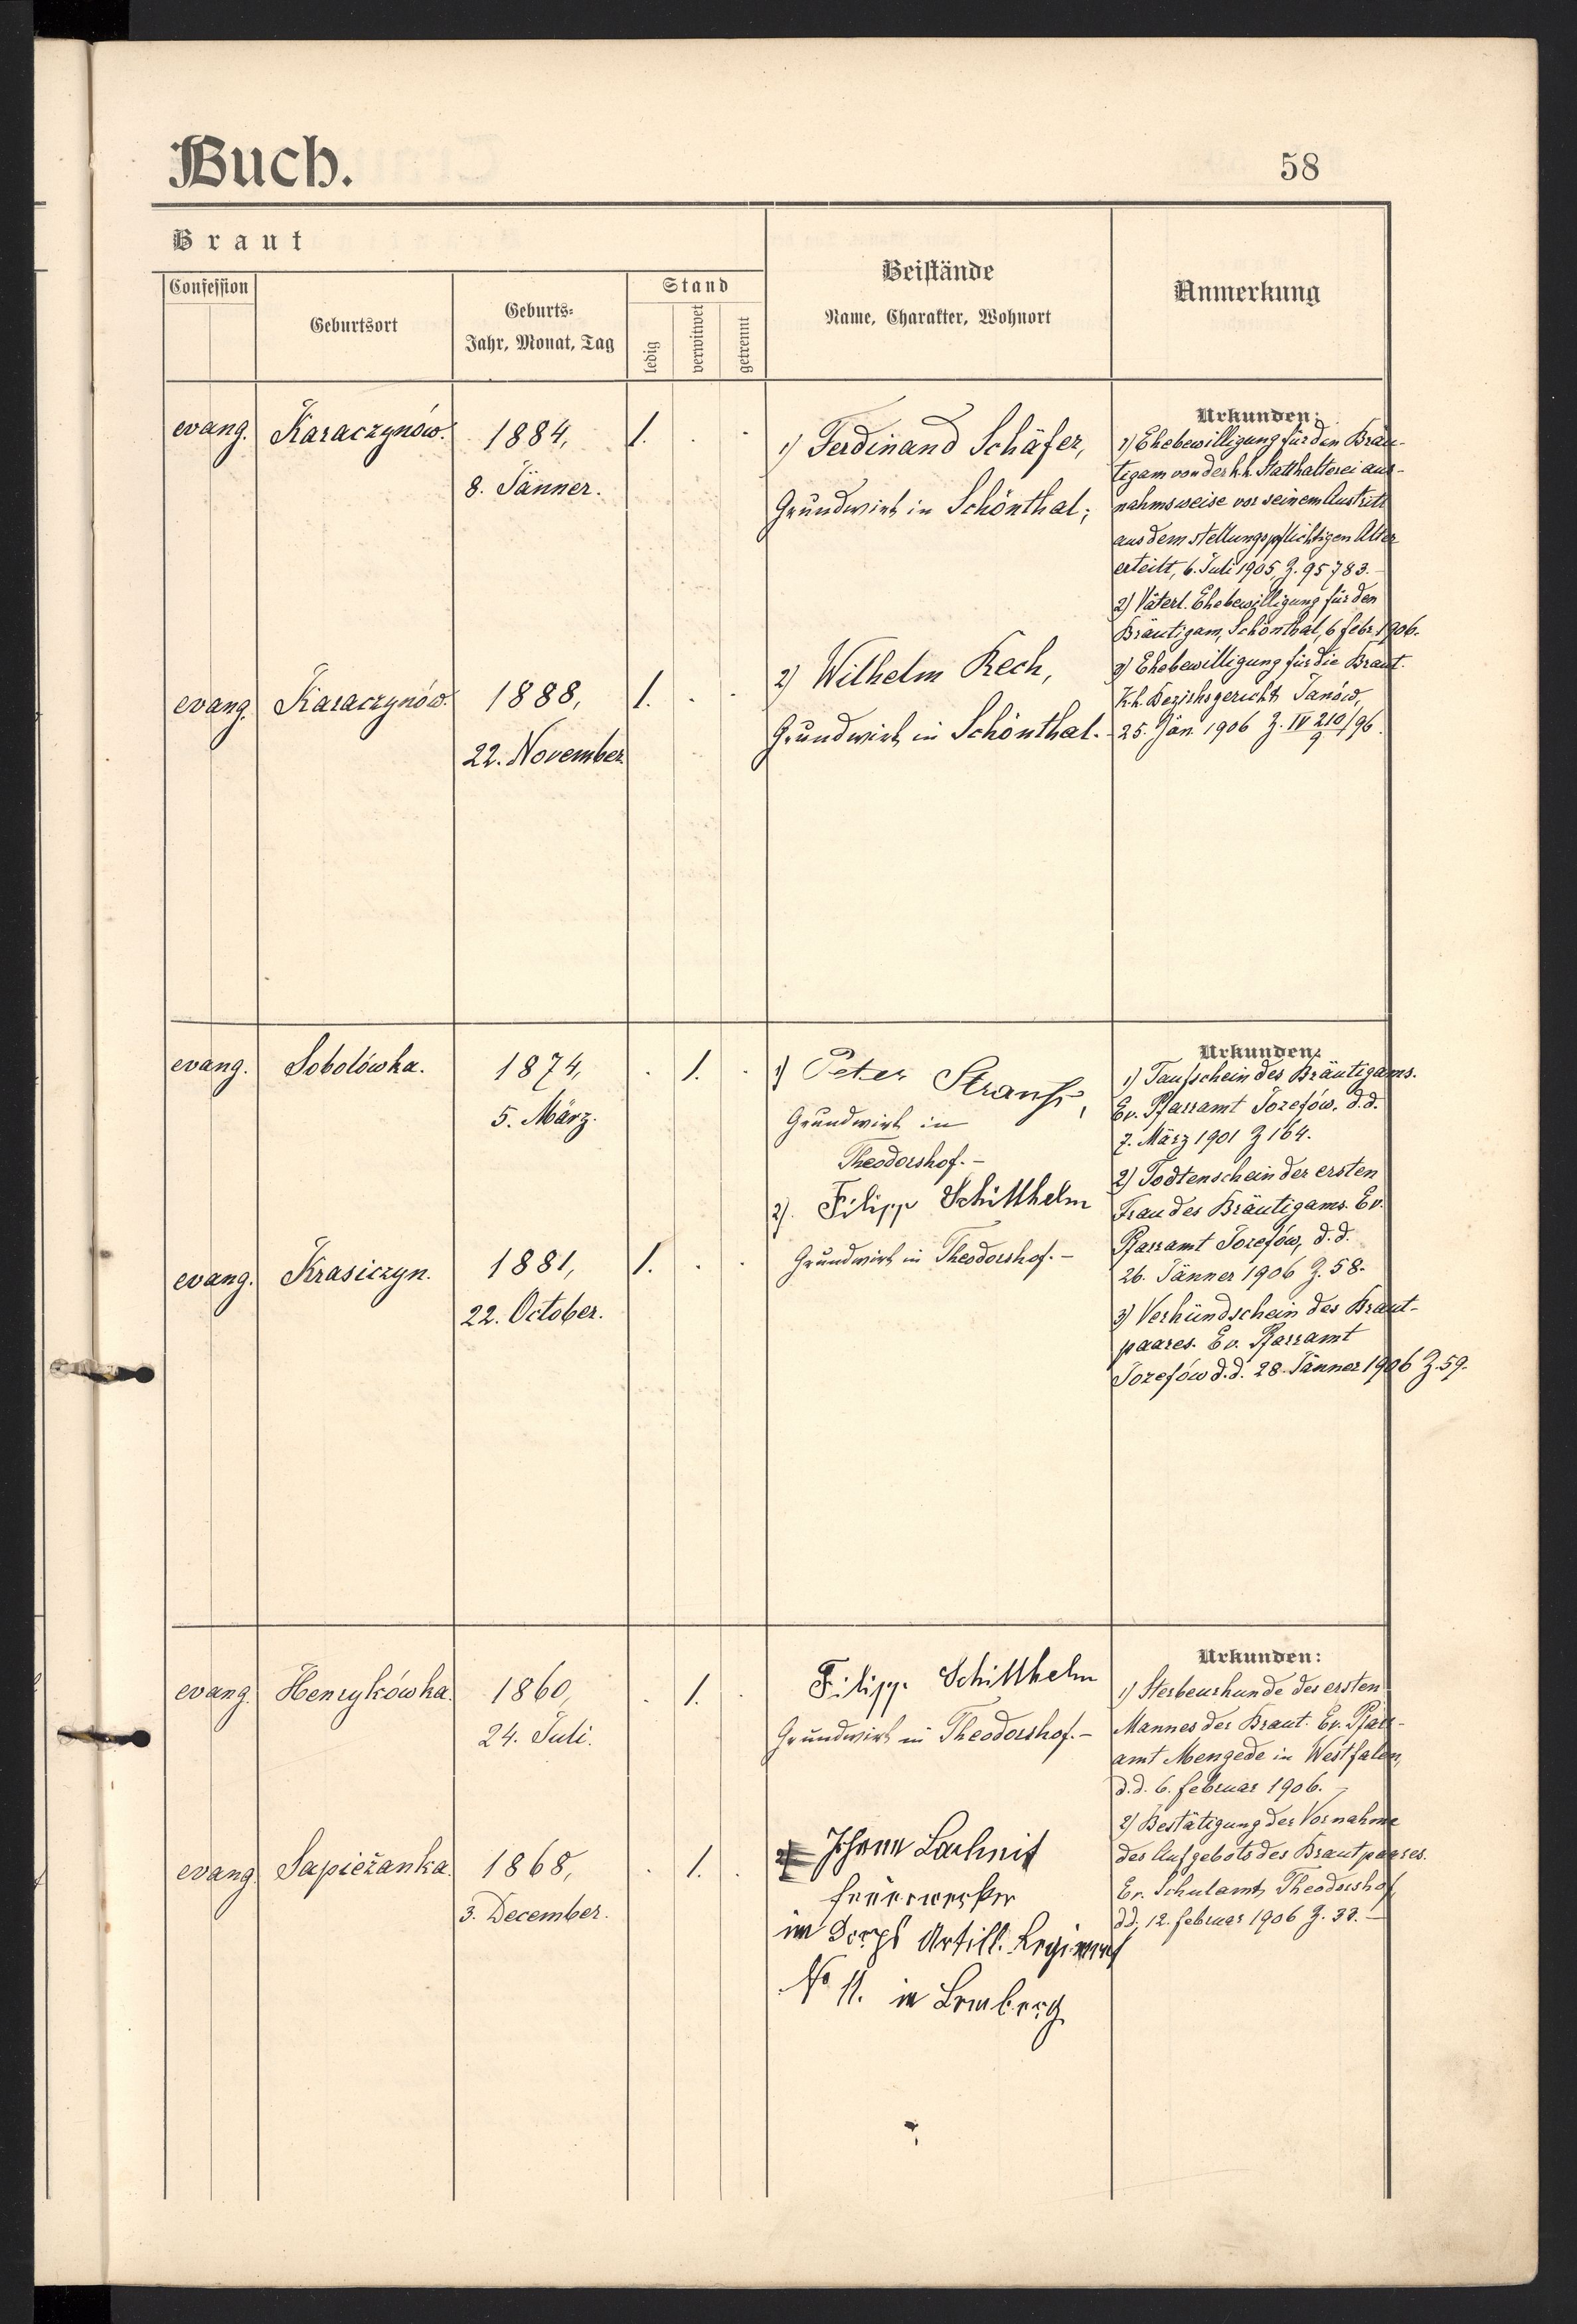 Buch.
58
Braut
Confession
Geburtsort
Geburts-
Jahr, Monat, Tag
Stand
ledig
verwitwet
getrennt
Beistände
Name, Charakter, Wohnort
Anmerkung
evang.
Karaczynów.
1884,
8. Jänner.
1.
1) Ferdinand Schäfer,
Grundwirt in Schönthal;
Urkunden:
1) Ehebewilligung für den Bräu-
tigam von der k.k. Statthalterei aus-
nahmsweise vor seinem Austritt
aus dem stellungspflichtigen Alter
erteilt, 6. Juli 1905, Z. 95783.-
2) Väterl. Ehebewilligung für den
Bräutigam, Schönthal, 6 febr. 1906.
3) Ehebewilligung für die Braut.
K.k. Bezirksgericht Janów,
25. Jän. 1906 Z. IV 210/96.
9
evang.
Karaczynów.
1888,
22. November
1.
2) Wilhelm Rech,
Grundwirt in Schönthal.-
evang.
Sobolówka.
1874,
5. März.
1.
1) Peter Strauss,
Grundwirt in
Theodorshof.-
2). Filipp Schitthelm
Grundwirt in Theodorshof.-
Urkunden:
1) Taufschein des Bräutigams.
Ev. Pfarramt Jozefów, d.d.
7. März 1901 Z 164.
2) Todtenschein der ersten
Frau des Bräutigams. Ev.
Pfarramt Jozefów, d.d.
26. Jänner 1906 Z. 58.
3) Verkündschein des Braut-
paares. Ev. Pfarramt
Jozefów d.d. 28. Jänner 1906 Z. 59.
evang.
Krasiczyn.
1881,
22. October.
1.
evang.
Henrykówka.
1860,
24. Juli.
1.
Filipp. Schitthelm
Grundwirt in Theodorshof.-
Urkunden:
1) Sterbeurkunde des ersten
Mannes der Braut. Ev. Pfarr-
amt Mengede in Westfalen,
d.d. 6. februar 1906.-
2) Bestätigung der Vornahme
des Aufgebots des Brautpaares.
Ev. Schulamt Theodorshof,
dd. 12. februar 1906 Z. 33.-
evang.
Sapieżanka.
1868,
3. December.
1.
Johann Lachnit
Feuerwerker
im Corps Artill. Regiment
No 11. in Lemberg